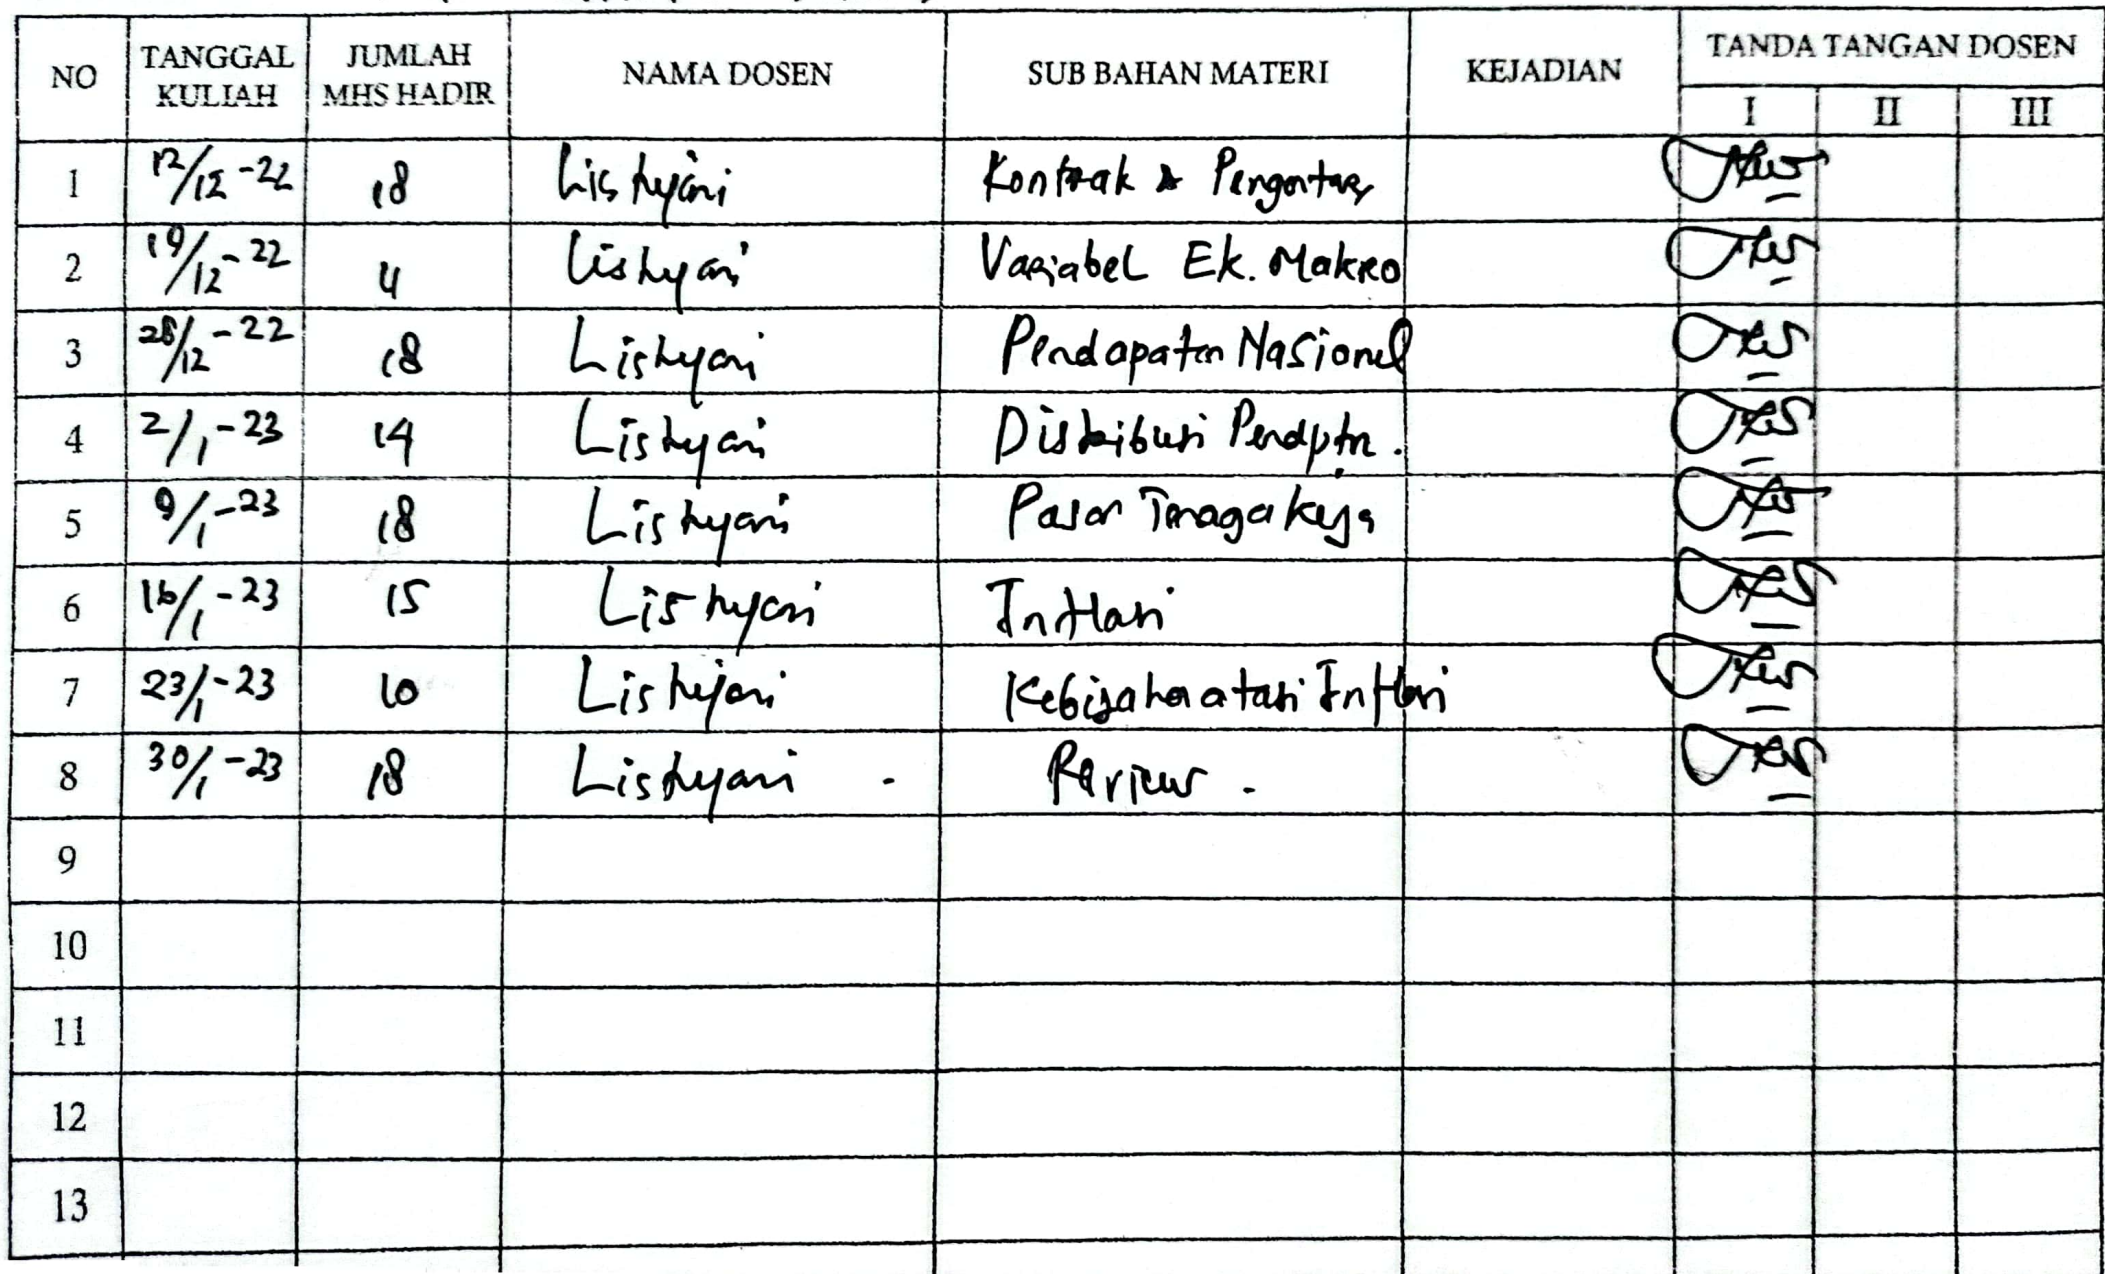 NO TANGGAL KULIAH JUMLAH MHS HADIR NAMA DOSEN SUB BAHAN MATERI KEJADIAN TANDA TANGAN DOSEN
I II III
1 12/12-22 18 Listyani Kontrak & Pengantar
2 19/12-22 4 Listyani Variabel Ek. Makro
3 12-22 18 Listyani Pendapatan Nasional
4 2/1-23 14 Listyani Distribusi Pendptn.
5 9/1-23 18 Listyani Pasar Tenaga kerja
6 16/1-23 15 Listyani Inflasi
7 23/1-23 10 Listyani Inflasi
8 30/1-23 18 Listyani . Review .
9
10
11
12
13